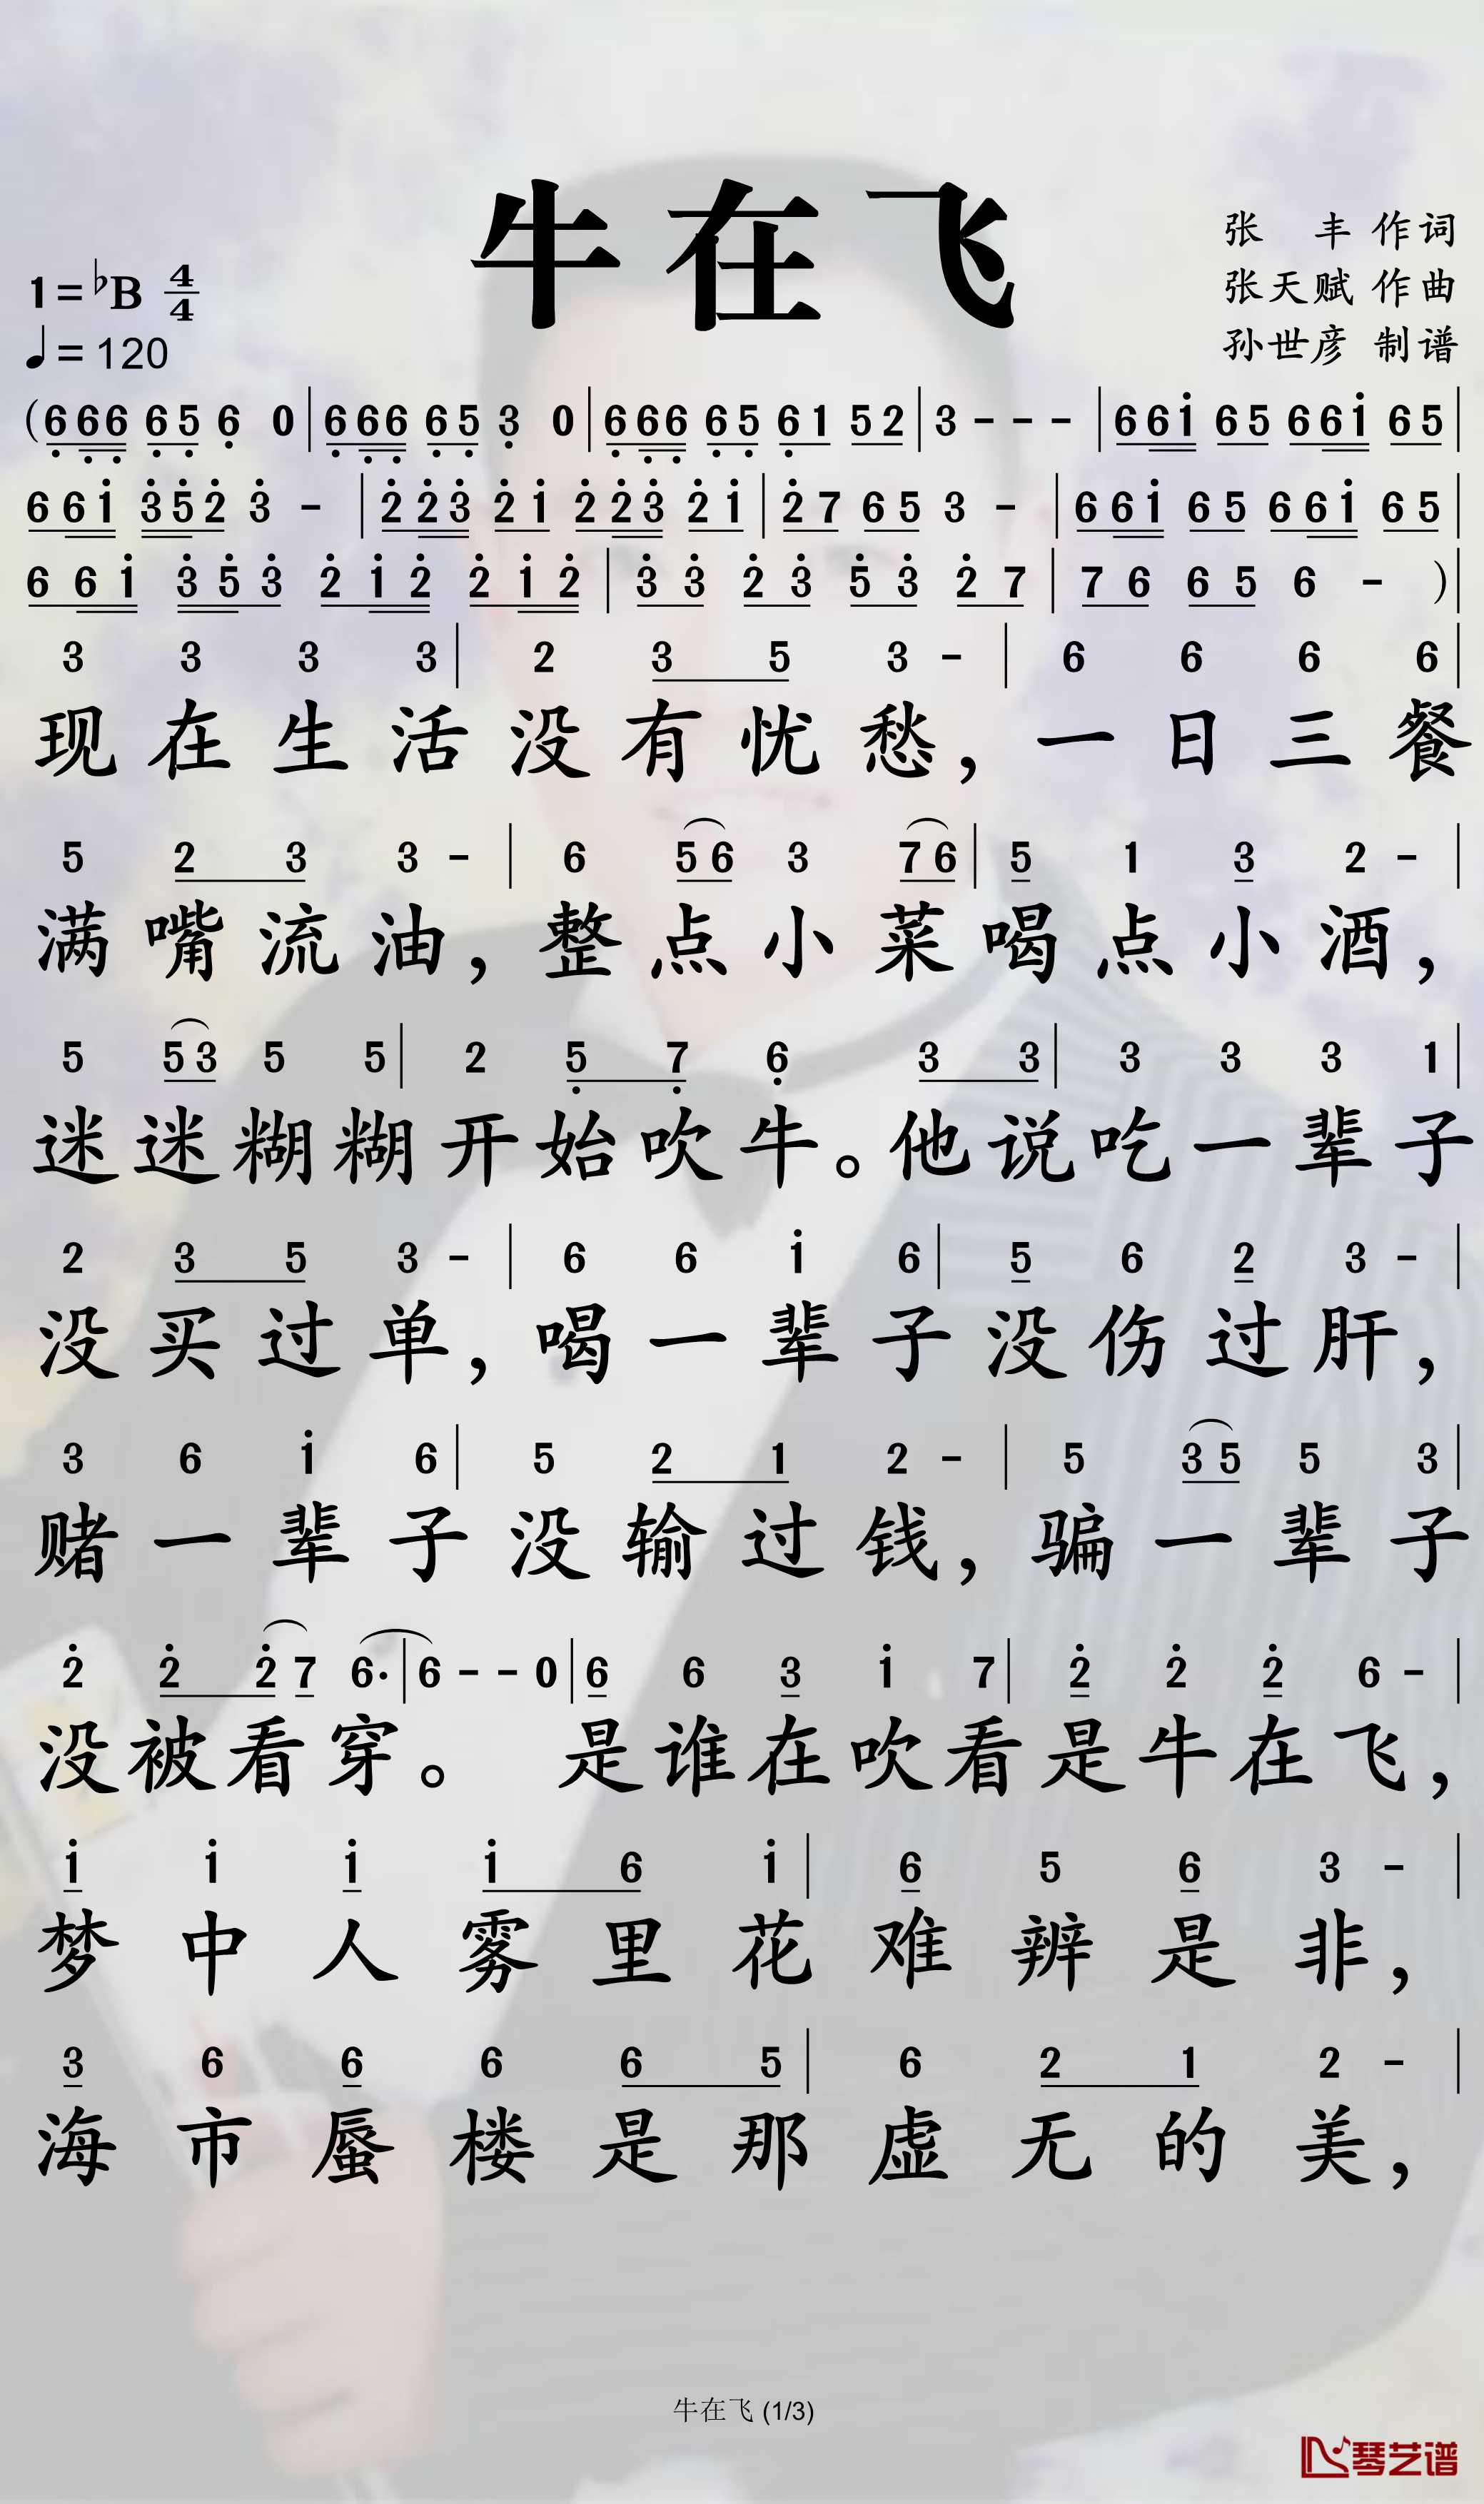 牛在飞
张 丰 作词
张天赋 作曲
孙世彦 制谱
1=♭B 4/4
♩=120
(6̣ 6̣6̣ 6̣5̣ 6̣ 0|6̣ 6̣6̣ 6̣5̣ 3̣ 0|6̣ 6̣6̣ 6̣5̣ 6̣1 52|3 - - -|66i 65 66i 65|
66i 3̇5̇2̇ 3̇ -|2̇2̇3̇ 2̇i 2̇2̇3̇ 2̇i|2̇7 65 3 -|66i 65 66i 65|
6 6 i 3̇ 5̇ 3̇ 2̇ i 2̇ 2̇ i 2̇|3̇ 3̇ 2̇ 3̇ 5̇ 3̇ 2̇ 7|7 6 6 5 6 - )|
3 3 3 3|2 3 5 3 -|6 6 6 6|
现在生活没有忧愁，一日三餐
5 2 3 3 -|6 56 3 76|5 1 3 2 -|
满嘴流油，整点小菜喝点小酒，
5 53 5 5|2 5̣ 7̣ 6̣ 3 3|3 3 3 1|
迷迷糊糊开始吹牛。他说吃一辈子
2 3 5 3 -|6 6 i 6|5 6 2 3 -|
没买过单，喝一辈子没伤过肝，
3 6 i 6|5 2 1 2 -|5 35 5 3|
赌一辈子没输过钱，骗一辈子
2̇ 2̇ 2̇7 6·|6 - - 0|6 6 3 i 7|2̇ 2̇ 2̇ 6 -|
没被看穿。 是谁在吹看是牛在飞，
i i i i 6 i|6 5 6 3 -|
梦中人雾里花难辨是非，
3 6 6 6 6 5|6 2 1 2 -|
海市蜃楼是那虚无的美，
牛在飞 (1/3)
琴艺谱